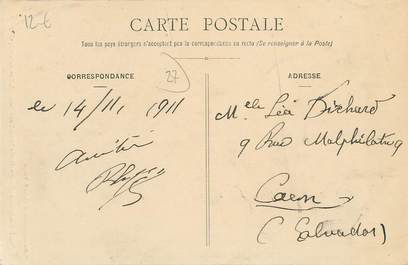 12-€
CARTE POSTALE
Tous les pays étrangers n'acceptent pas la correspondance au recto (Se renseigner à la Poste)
CORRESPONDANCE
27
le 14/11, 1911
Amitié
ADRESSE
Melle Léa Dichard
9 Rue Malphilatre 9
Caen
(Calvados)